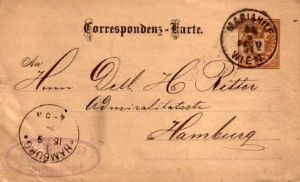 Correspondenz-Karte.
MARIAHILF
WIEN
An
Herrn Dell. H Ritter
Admiralitatsstr
Hamburg
HAMBURG